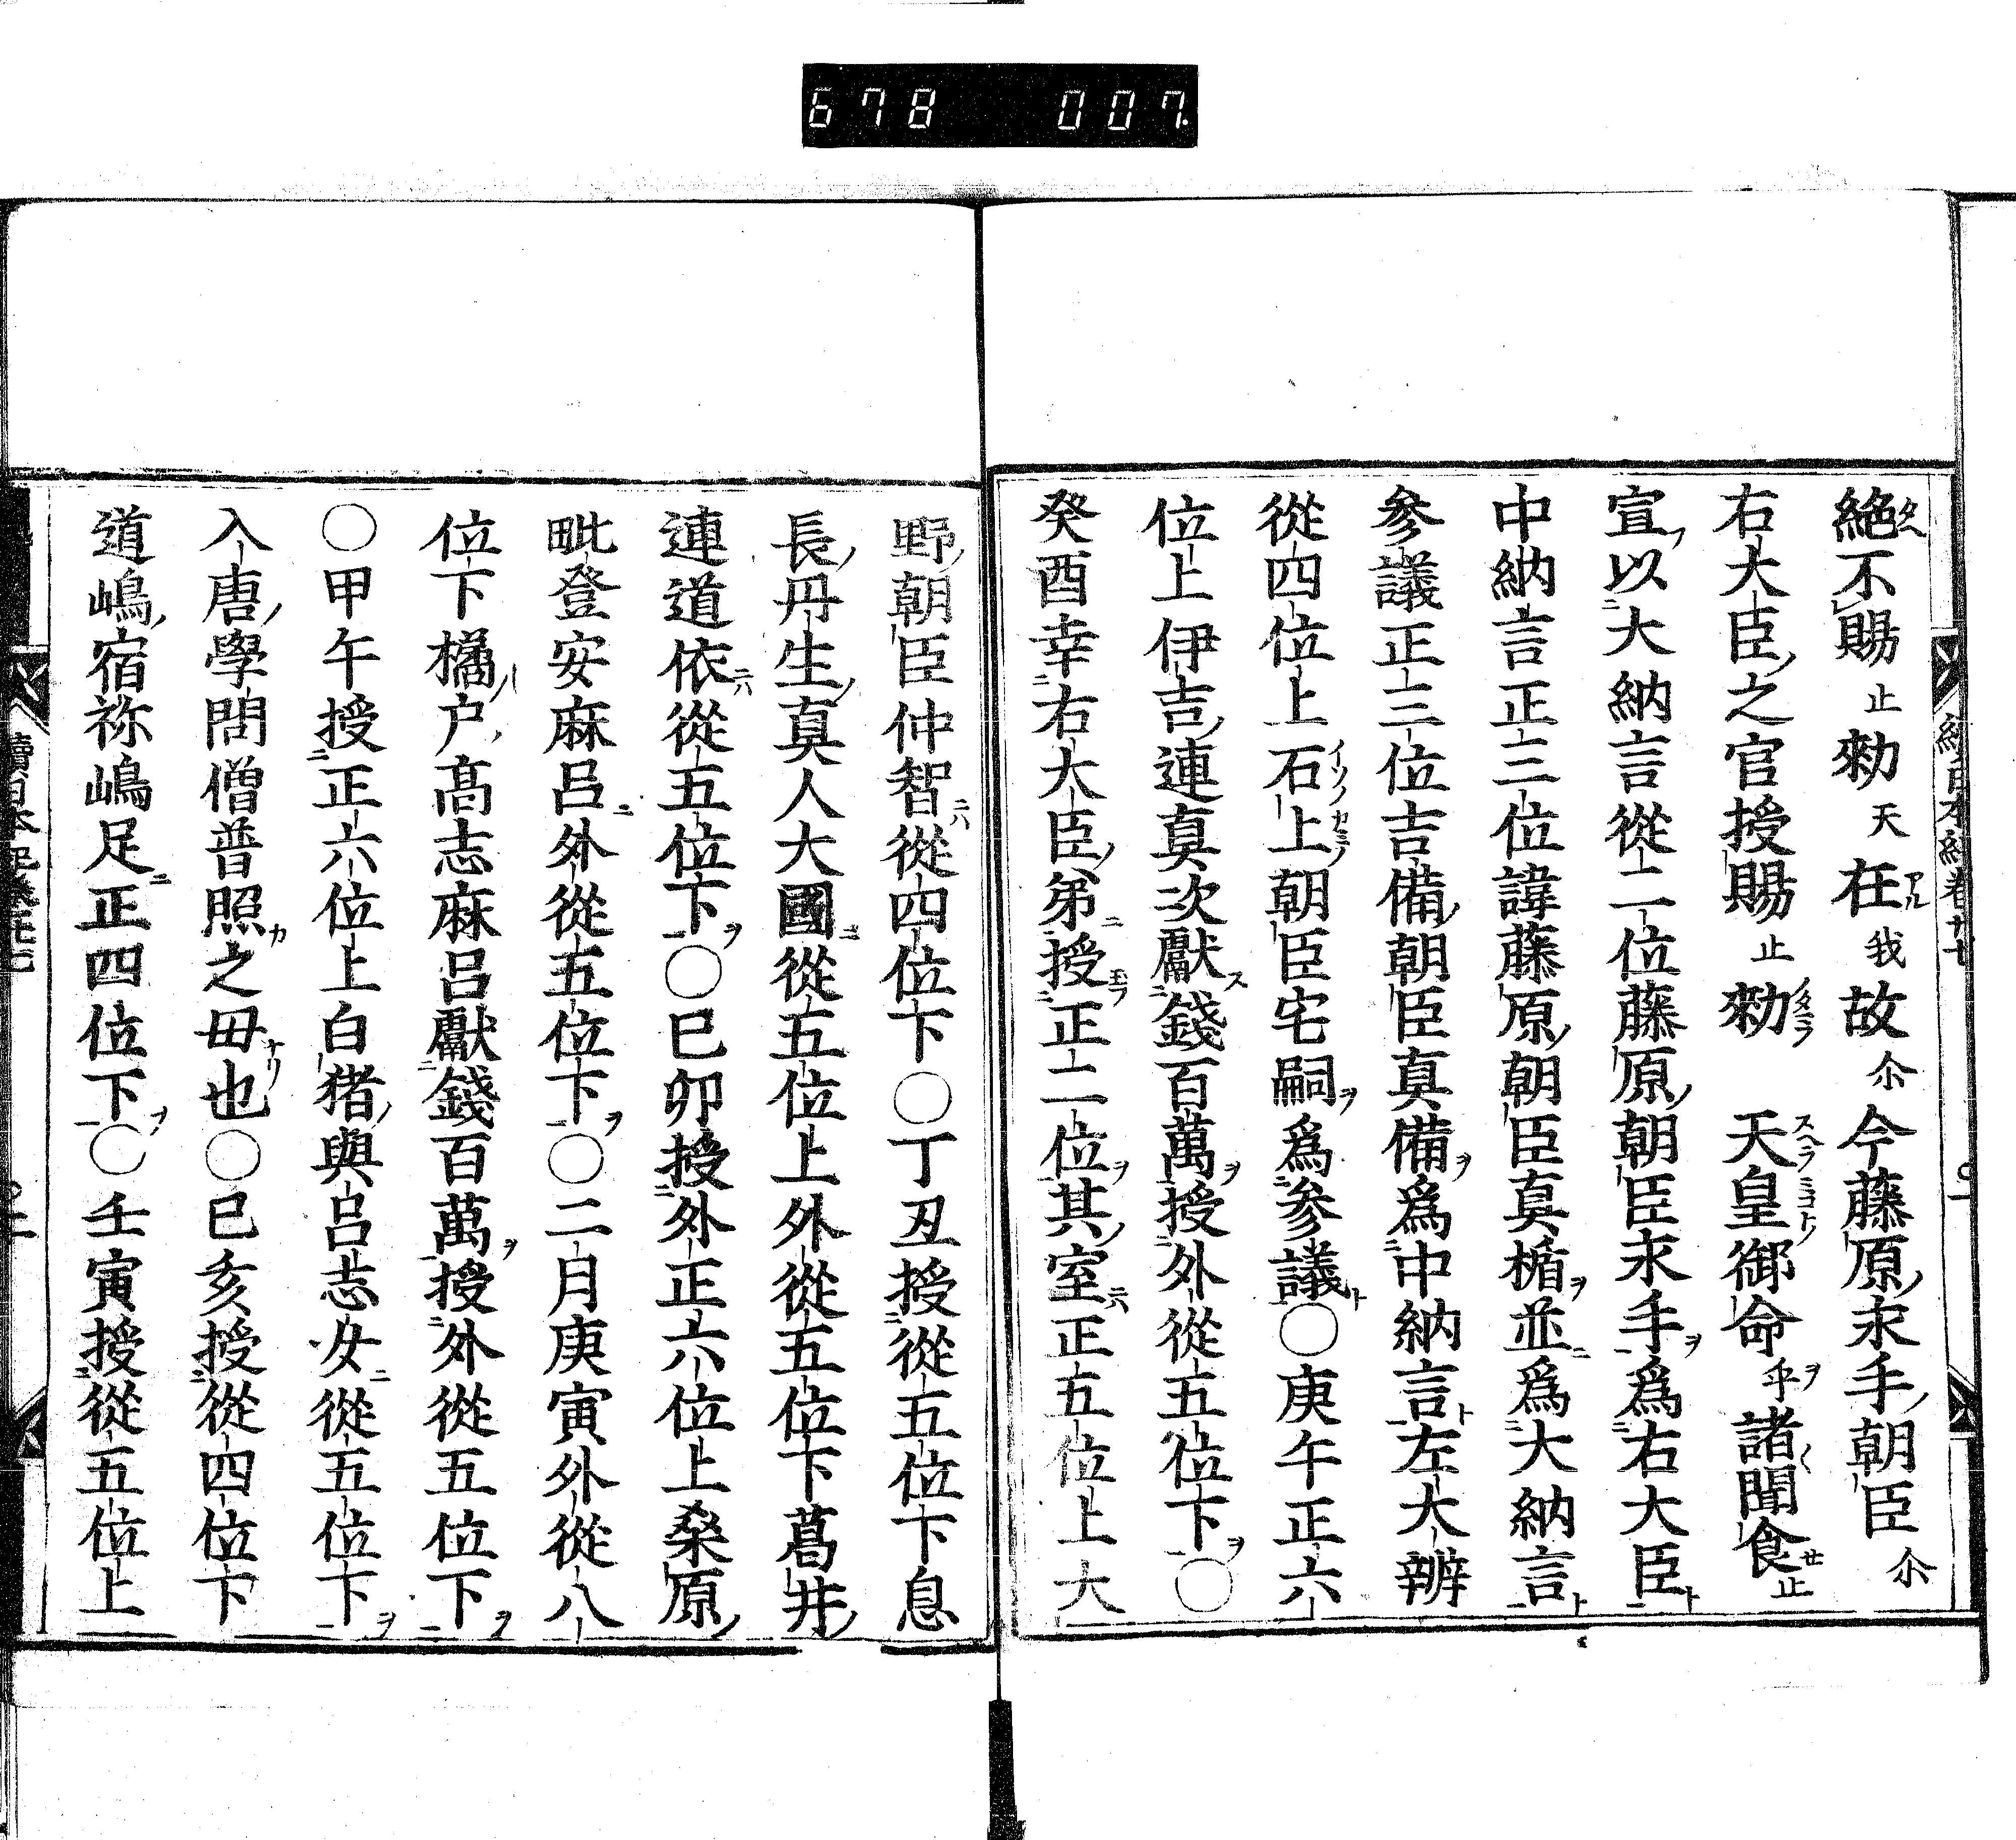 678 007
絶不賜止勑天在我故尒今藤原永手朝臣尒
右大臣之官授賜止勑天皇御命乎諸聞食止
宣以大納言從二位藤原朝臣永手爲右大臣
中納言正三位諱藤原朝臣真楯並爲大納言
參議正三位吉備朝臣真備爲中納言左大辨
從四位上石上朝臣宅嗣爲參議〇庚午正六
位上伊吉連真次獻錢百萬授外從五位下〇
癸酉幸右大臣第授正二位其室正五位上大
野朝臣仲智從四位下〇丁丑授從五位下息
長丹生真人大國從五位上外從五位下葛井
連道依從五位下〇巳卯授外正六位上桒原
毗登安麻呂外從五位下〇二月庚寅外從八
位下橘户髙志麻呂獻錢百萬授外從五位下
〇甲午授正六位上白猪與呂志女從五位下
入唐學問僧普照之毋也〇巳亥授從四位下
道嶋宿祢嶋足正四位下〇壬寅授從五位上